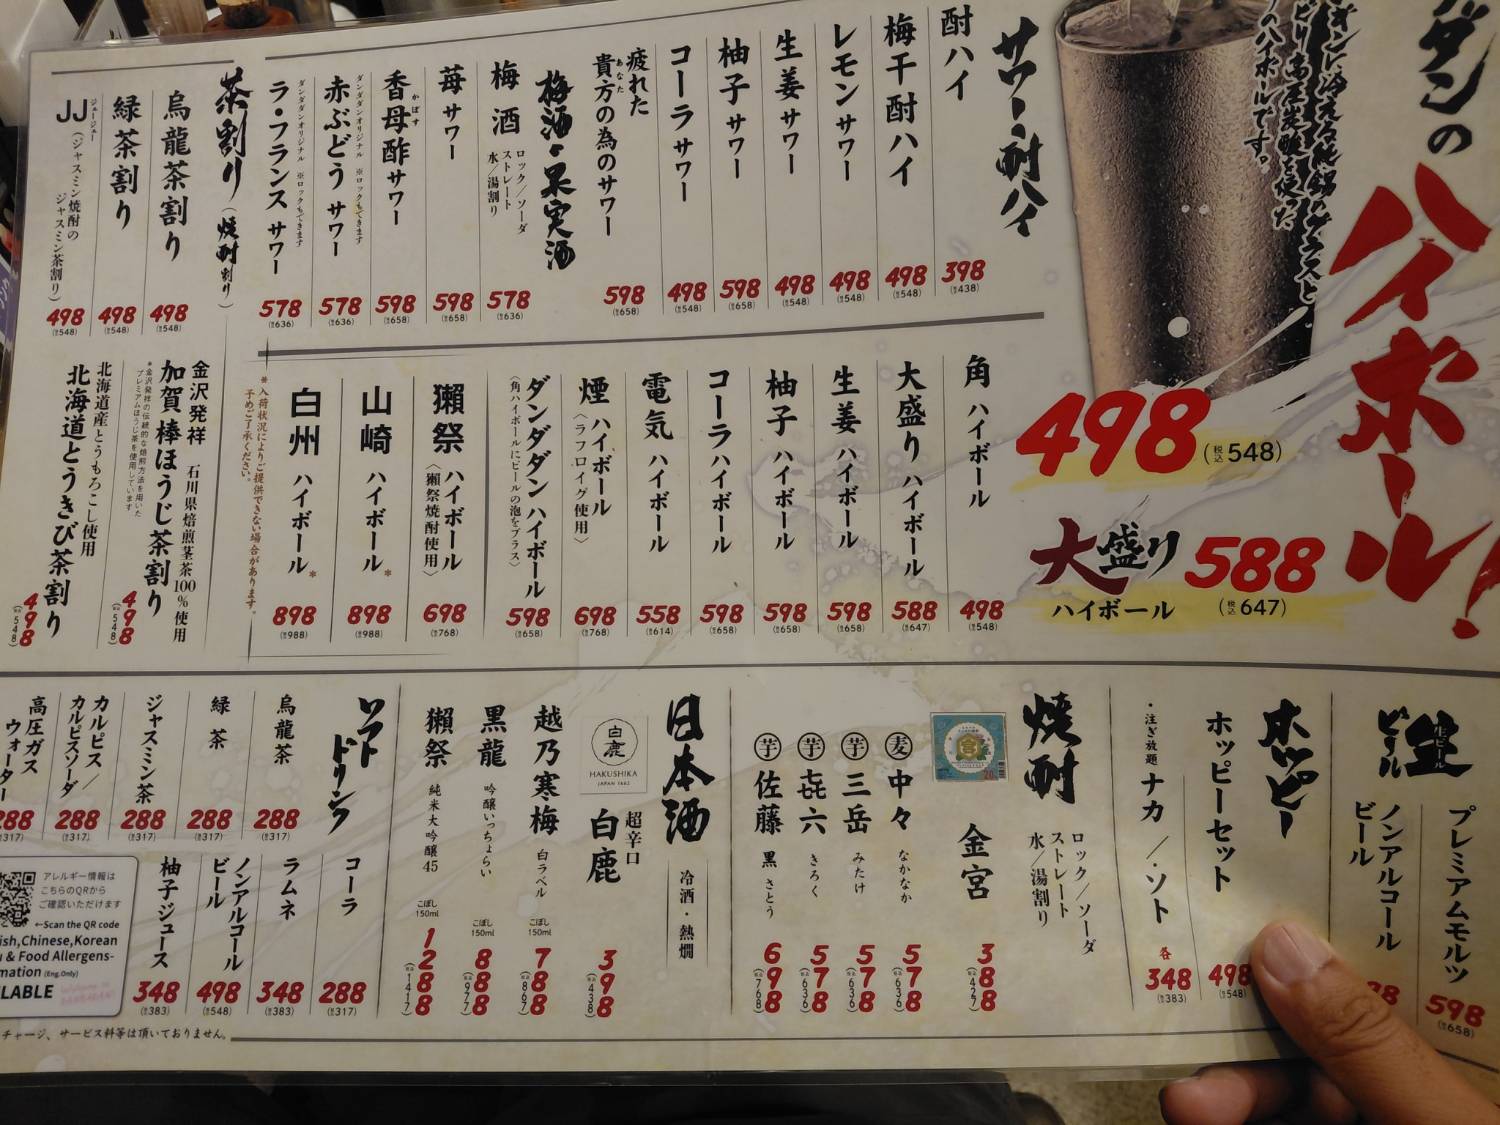 ダンの
ハイボール!
のハイボールです。
498
(税込548)
大盛り
ハイボール
588
(税込647)
サワー・酎ハイ
酎ハイ
398
(税438)
梅干酎ハイ
498
(税548)
レモンサワー
498
(税548)
生姜サワー
498
(税548)
柚子サワー
598
(税658)
コーラサワー
498
(税548)
疲れた
貴方の為のサワー
あなた
598
(税658)
梅酒・果実酒
梅酒
ロック/ソーダ
ストレート
水/湯割り
578
(税636)
苺サワー
598
(税658)
香母酢サワー
かぼす
598
(税658)
ダンダダンオリジナル ※ロックもできます
赤ぶどうサワー
578
(税636)
ダンダダンオリジナル ※ロックもできます
ラ・フランスサワー
578
(税636)
茶割り(焼酎割り)
烏龍茶割り
498
(税548)
緑茶割り
498
(税548)
ジェージェー
JJ(ジャスミン焼酎の
ジャスミン茶割り)
498
(税548)
角ハイボール
498
(税548)
大盛りハイボール
588
(税647)
生姜ハイボール
598
(税658)
柚子ハイボール
598
(税658)
コーラハイボール
598
(税658)
電気ハイボール
558
(税614)
煙ハイボール
〈ラフロイグ使用〉
698
(税768)
ダンダダンハイボール
〈角ハイボールにビールの泡をプラス〉
598
(税658)
獺祭ハイボール
〈獺祭焼酎使用〉
698
(税768)
山崎ハイボール*
898
(税988)
白州ハイボール*
898
(税988)
*入荷状況によりご提供できない場合があります。
予めご了承ください。
金沢発祥 石川県焙煎茎茶100%使用
加賀棒ほうじ茶割り
*金沢発祥の伝統的な焙煎方法を用いた
プレミアムほうじ茶を使用しています
498
(税548)
北海道産とうもろこし使用
北海道とうきび茶割り
498
(税548)
生ビール
生ビール
プレミアムモルツ
598
(税658)
ノンアルコール
ビール
98
ホッピー
ホッピーセット
498
(税548)
・注ぎ放題
ナカ/・ソト
各
348
(税383)
焼酎
ロック/ソーダ
ストレート
水/湯割り
金宮
388
(税込427)
麦 中々 なかなか
578
(税込636)
芋 三岳 みたけ
578
(税込636)
芋 㐂六 きろく
578
(税込636)
芋 佐藤 黒 さとう
698
(税込768)
日本酒
冷酒・熱燗
白鹿
HAKUSHIKA
JAPAN 1662
超辛口
白鹿
398
(税込438)
越乃寒梅 白ラベル
こぼし
150ml
788
(税込867)
黒龍 吟醸いっちょらい
こぼし
150ml
888
(税込977)
獺祭 純米大吟醸45
こぼし
150ml
1288
(税込1417)
ソフトドリンク
烏龍茶
288
(税317)
緑茶
288
(税317)
ジャスミン茶
288
(税317)
カルピス/
カルピスソーダ
288
(税317)
高圧ガス
ウォーター
288
(税317)
コーラ
288
(税317)
ラムネ
348
(税383)
ノンアルコール
ビール
498
(税548)
柚子ジュース
348
(税383)
アレルギー情報は
こちらのQRから
ご確認いただけます
←Scan the QR code
ish,Chinese,Korean
u & Food Allergens-
mation (Eng.Only)
LABLE
チャージ、サービス料等は頂いておりません。